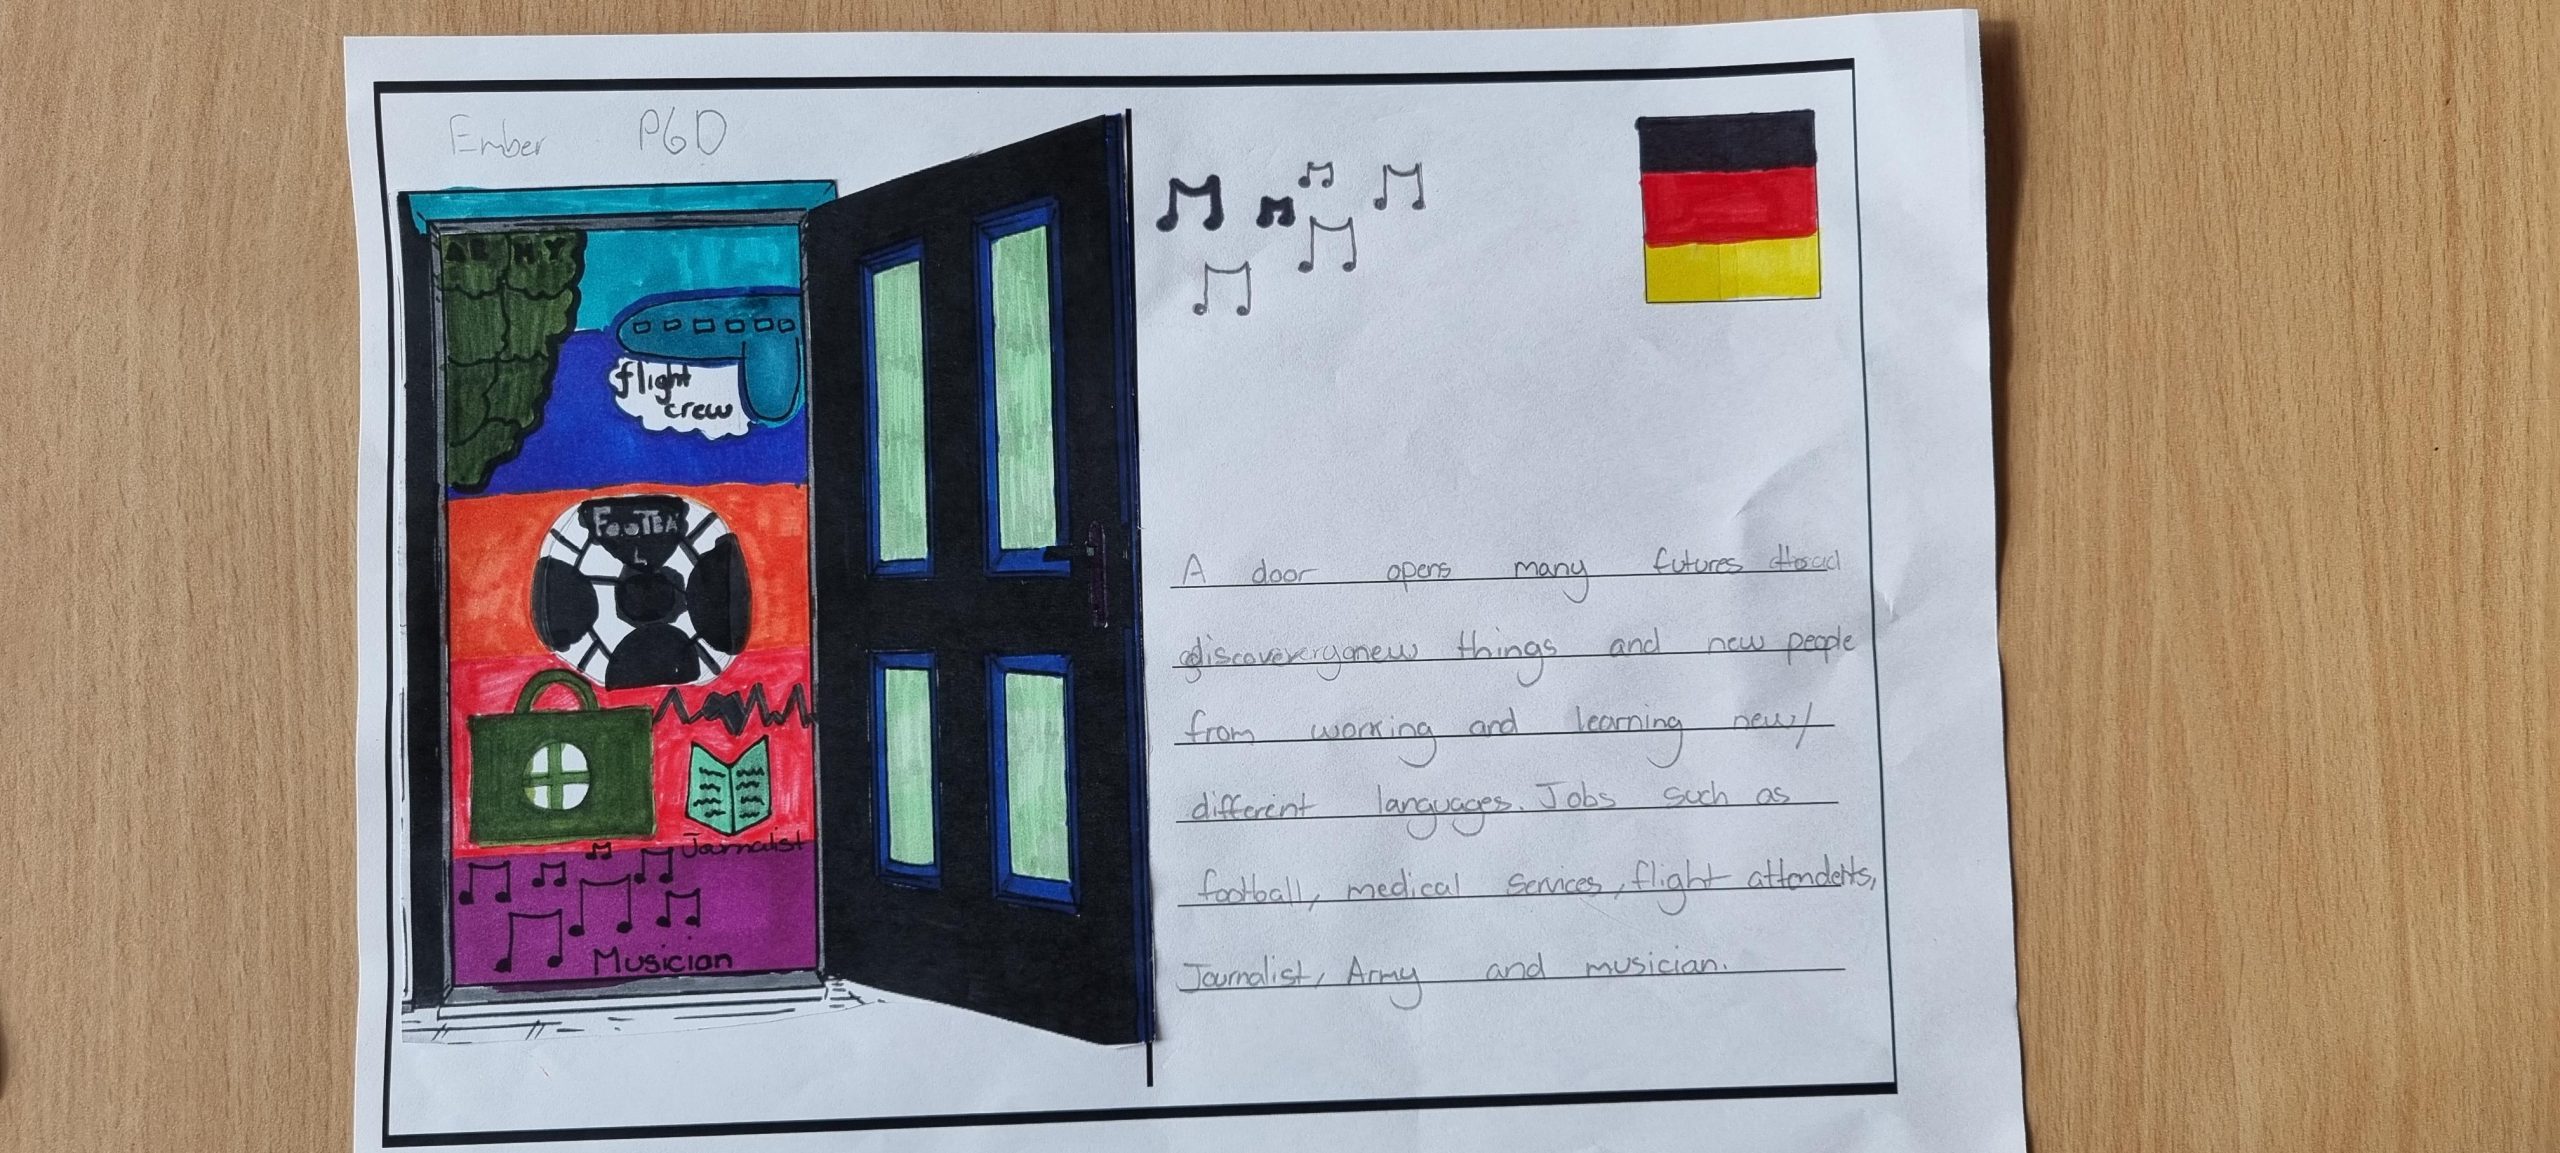 Ember P6D
ARMY
flight
crew
FooTBA
L
Journalist
Musician
A door opens many futures
new things and new people
from working and learning new/
different languages. Jobs such as
football, medical services, flight attendents,
Journalist, Army and musician.